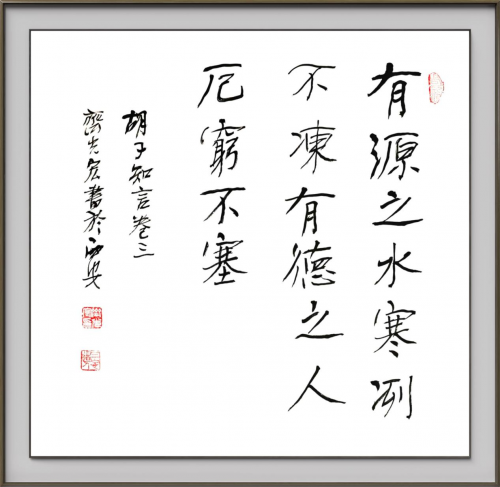 有源之水寒冽
不凍有德之人
厄窮不塞
胡子知言卷三
齊先宏書於